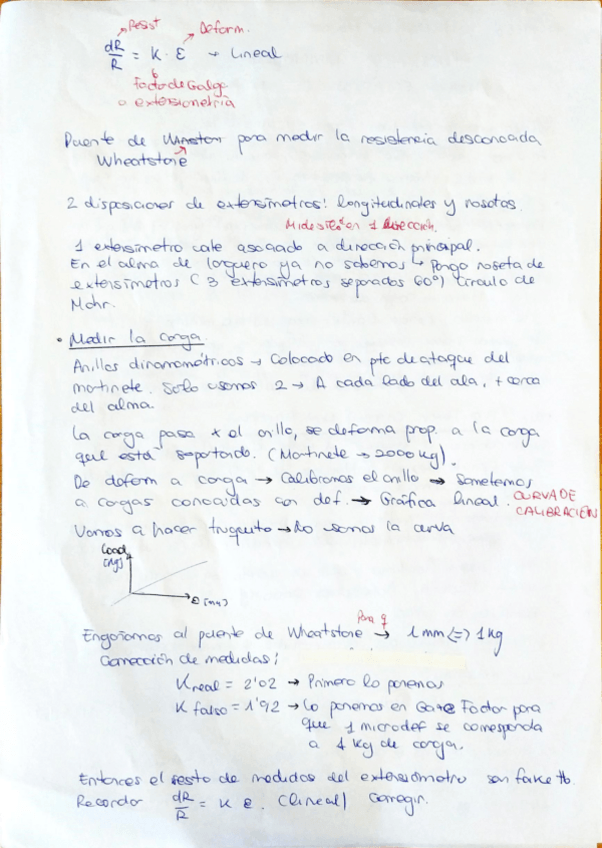 Resist
Deform.
dR/R = K · ε → Lineal
Factor de Galga
o extensiometría
Puente de Winston para medir la resistencia desconocida
Wheatstone
2 disposiciones de extensímetros: longitudinales y rosetas.
Mides ε en 1 dirección.
1 extensímetro cale asociado a dirección principal.
En el alma de larguero ya no sabemos → Pongo roseta de
extensímetros (3 extensímetros separados 60º) Círculo de
Mohr.
· Medir la carga.
Anillos dinamométricos → Colocado en pto de ataque del
martinete. Solo usamos 2 → A cada lado del ala, + cerca
del alma.
La carga pasa x el anillo, se deforma prop. a la carga
que está soportando. (Martinete → 2000 kg).
De deform a carga → Calibramos el anillo → Sometemos
a cargas conocidas con def. → Gráfica lineal. CURVA DE
CALIBRACIÓN
Vamos a hacer truquito → No usamos la curva
Load
(kg)
ε (mm)
Para q
Engañamos al puente de Wheatstone → 1 mm <=> 1 kg
Corrección de medidas:
K real = 2'02 → Primero lo ponemos
K falso = 1'92 → Lo ponemos en Gage Factor para
que 1 microdef se corresponda
a 1 kg de carga.
Entonces el resto de medidas del extensómetro son fake tb.
Recordar dR/R = K ε. (lineal) Corregir.